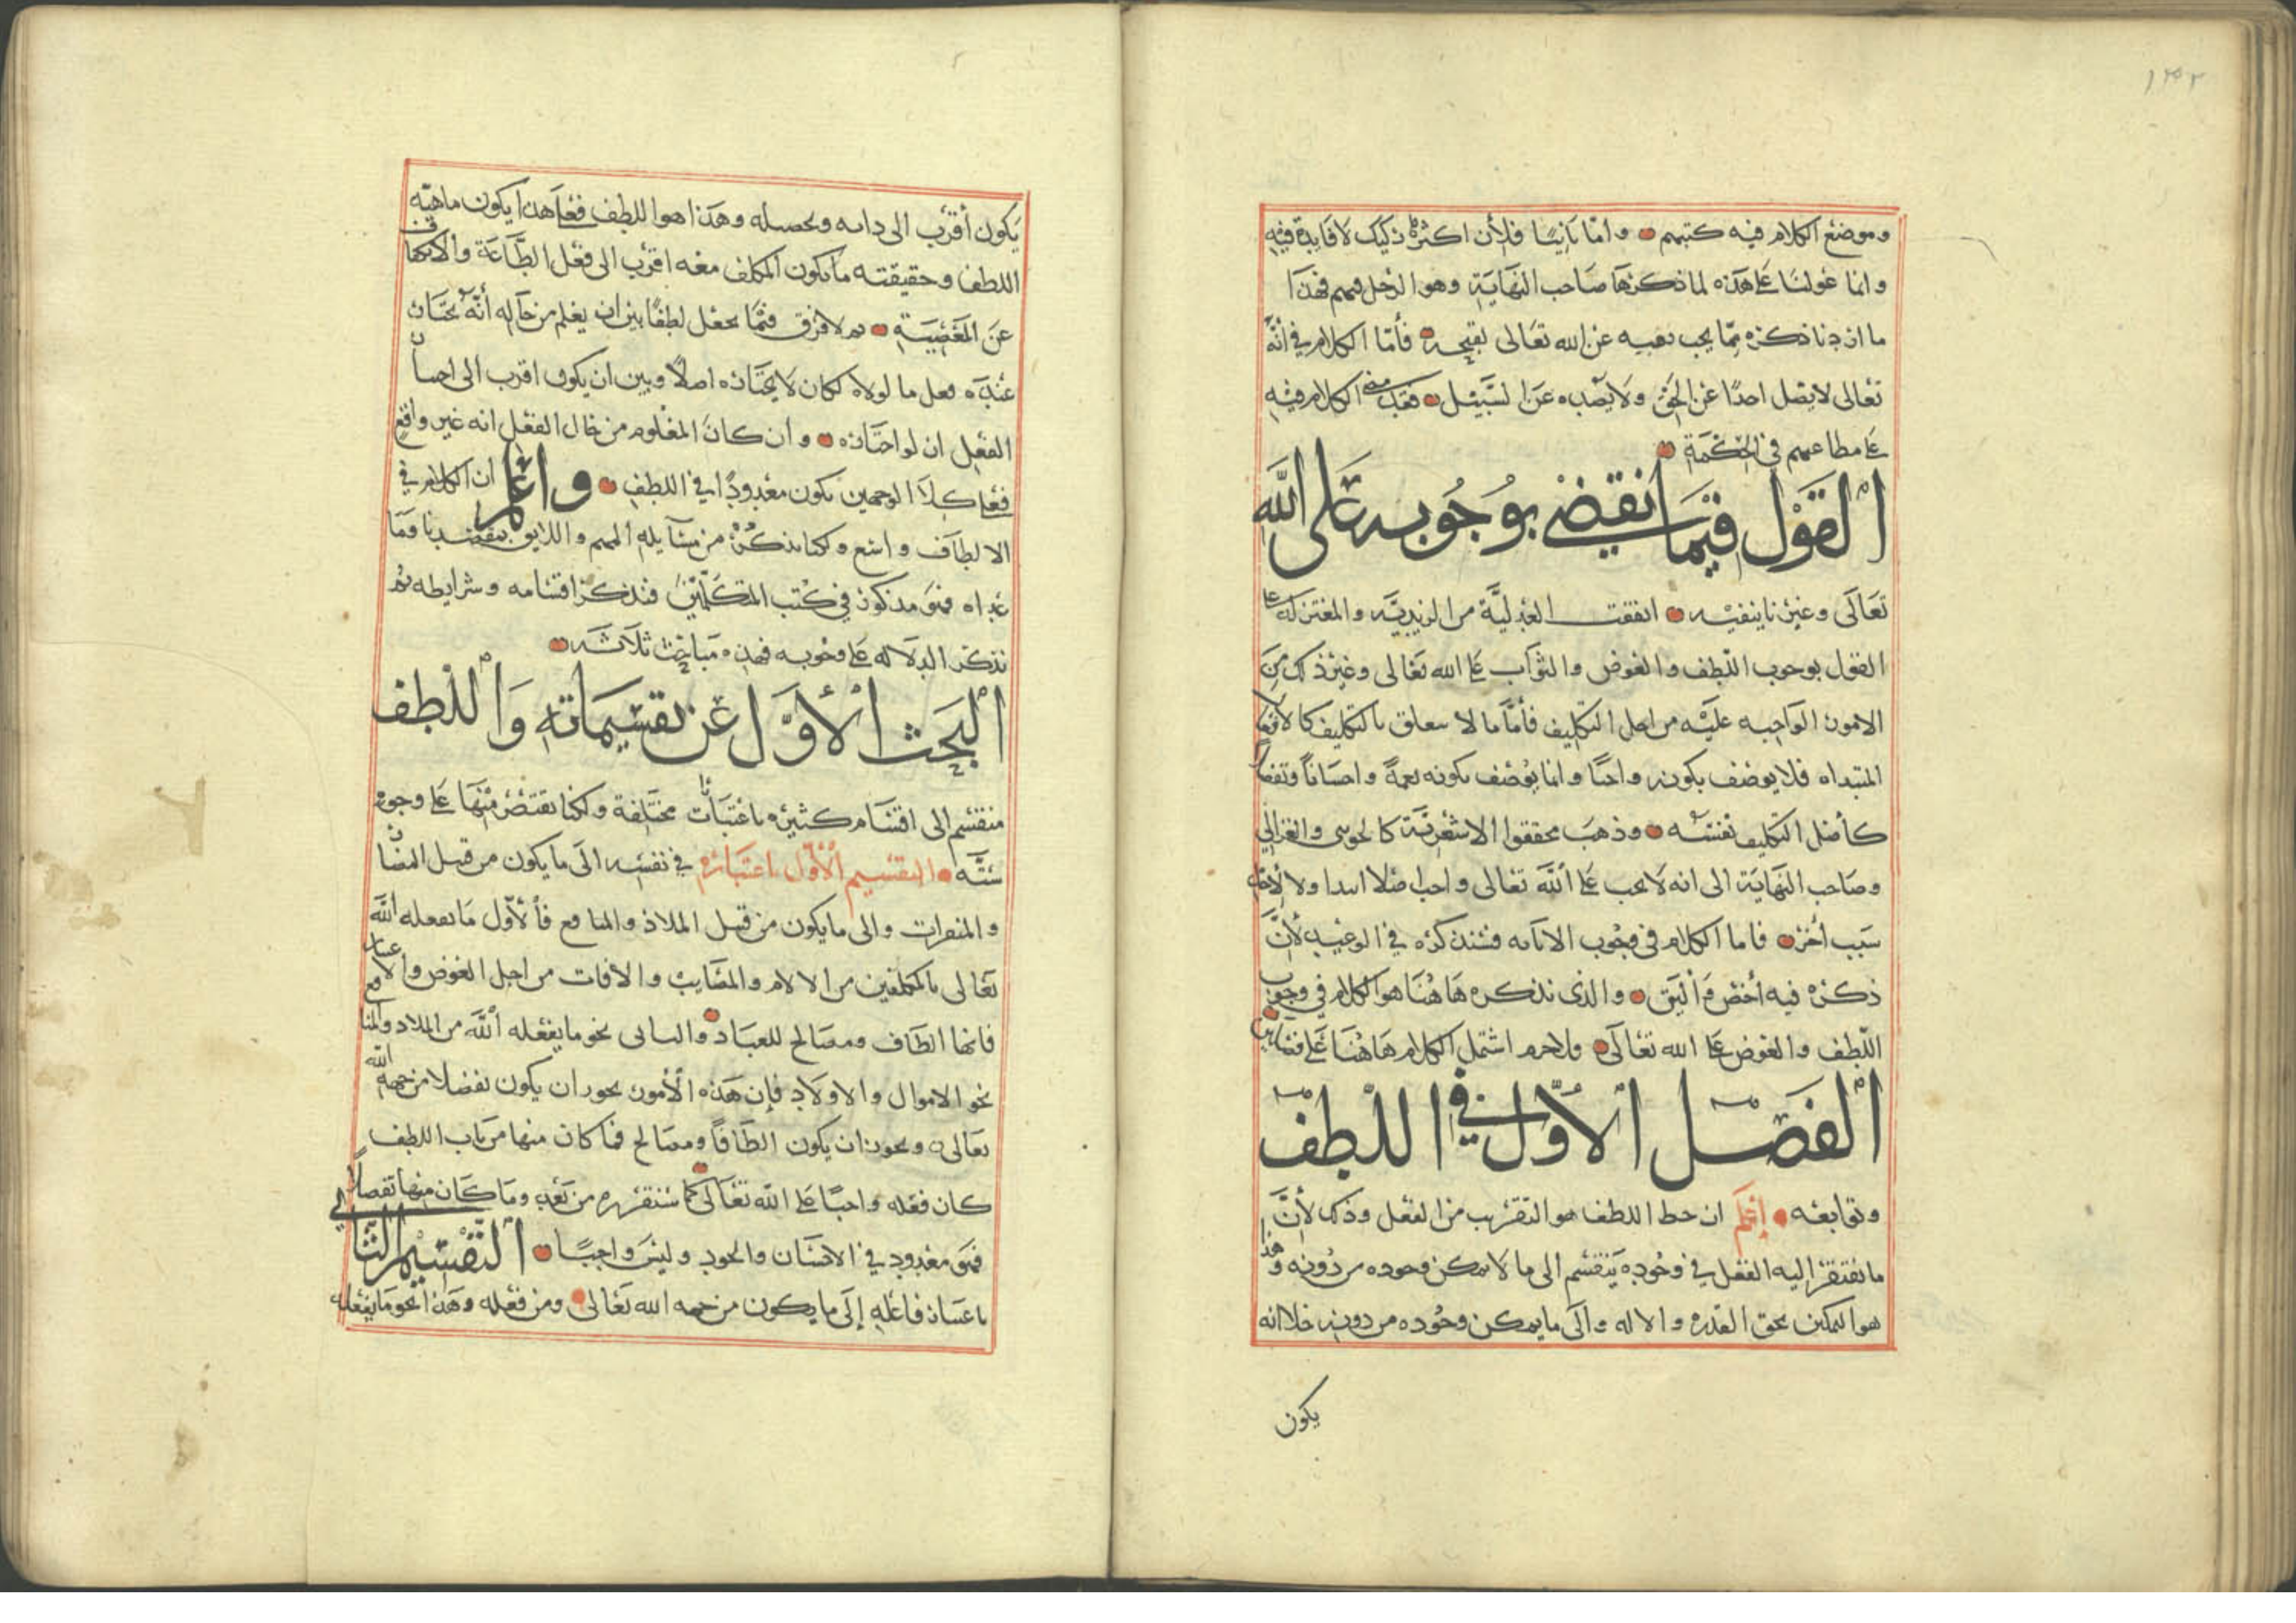 ١٣٢
وموضع الكلام فيه كتبهم وامّا ثانيًا فلأن اكثره ركيك لا فايدة فيه
وانما عولنا على هذه لما ذكرها صاحب النهاية وهو الرجل فيهم فهذا
ما اردنا ذكره ممّا يجب نفيه عن الله تعالى لقبحه فأمّا الكلام في أنّه
تعالى لا يضل احدًا عن الحق ولا يصده عن السبيل فقد مضى الكلام فيه
على مطاعنهم في الحكمة
القول فيما نقضي بوجوبه على الله
تعالى وغيرنا ينفيه اتفقت العدليّة من الزيديّه والمعتزله على
القول بوجوب اللطف والعوض والثواب على الله تعالى وغير ذلك من
الامور الواجبه عليه من اجل التكليف فأمّا ما لا يتعلق بالتكليف كالافعال
المبتداه فلا يوصف بكونه واجبًا وانما يوصف بكونه نعمةً واحسانًا وتفضلا
كأصل التكليف نفسه وذهب محققوا الاشعريّة كالجويني والغزالي
وصاحب النهاية الى انه لا يجب على الله تعالى واجب اصلا ابتدا ولا لاجل
سبب آخر فاما الكلام في وجوب الاثابه فسنذكره في الوعيد لأنّ
ذكره فيه أخص وأليق والذى نذكره هاهنا هو الكلام في وجوب
اللطف والعوض على الله تعالى ولا جرم اشتمل الكلام هاهنا على فصلين
الفصل الأول في اللطف
وتوابعه إعلم ان حظ اللطف هو التقريب من الفعل وذلك لأنّ
ما يفتقر إليه الفعل في وجوده ينقسم الى ما لا يمكن وجوده من دونه وهذا
هو التمكين بحق القدره والاله والى ما يمكن وجوده من دونه خلا انه
يكون
يكون أقرب الى ذاته وتحصيله وهذا هو اللطف فعلى هذا يكون ماهيّه
اللطف وحقيقته ما يكون المكلف معه اقرب الى فعل الطاعة والانكفاف
عن المعصية ثم لا فرق فيما يجعل لطفًا بين ان يعلم من حاله أنّه يختار
عنده فعل ما لولاه لكان لا يختاره اصلًا وبين ان يكون اقرب الى احسان
الفعل ان لو اختاره وان كان المعلوم من حال الفعل انه غير واقع
فعلى كلا الوجهين يكون معدودًا في اللطف واعلم ان الكلام في
الالطاف واسع ولكنا نذكر من مسآيله المهم واللايق بمقصدنا وما
عداه فهو مذكور في كتب المتكلّمين فنذكر اقسامه وشرايطه ثم
نذكر الدلاله على وجوبه فهذه مباحث ثلاثه
البحث الأوّل عن تقسيماته واللطف
منقسم الى اقسام كثيره باعتبارات مختلفة ولكنا نقتصر منها على وجوه
ستّه التقسيم الأوّل باعتباره في نفسه الى ما يكون من قبل المضار
والمنفرات والى ما يكون من قبل الملاذ والمنافع فالأوّل ما يفعله الله
تعالى بالمكلفين من الالام والمصايب والافات من اجل العوض والاعتبار
فانها الطاف ومصالح للعباد والثانى نحو ما يفعله الله من الملاذ والمنافع
نحو الاموال والاولاد فإن هذه الأمور يجوز ان يكون تفضلا من جهه الله
تعالى ويجوز ان يكون الطافًا ومصالح فما كان منها من باب اللطف
كان فعله واجبًا على الله تعالى كما سنقرره من بعد وما كان منها تفضلًا
فهو معدود في الاحسان والجود وليس واجبًا التقسيم الثاني
باعتبار فاعله إلى ما يكون من جهه الله تعالى ومن فعله وهذا نحو ما يفعله